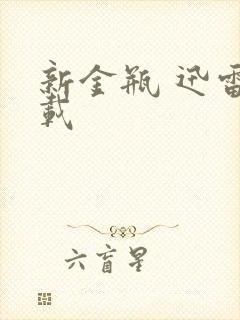 新金瓶 迅雷
载
六盲星